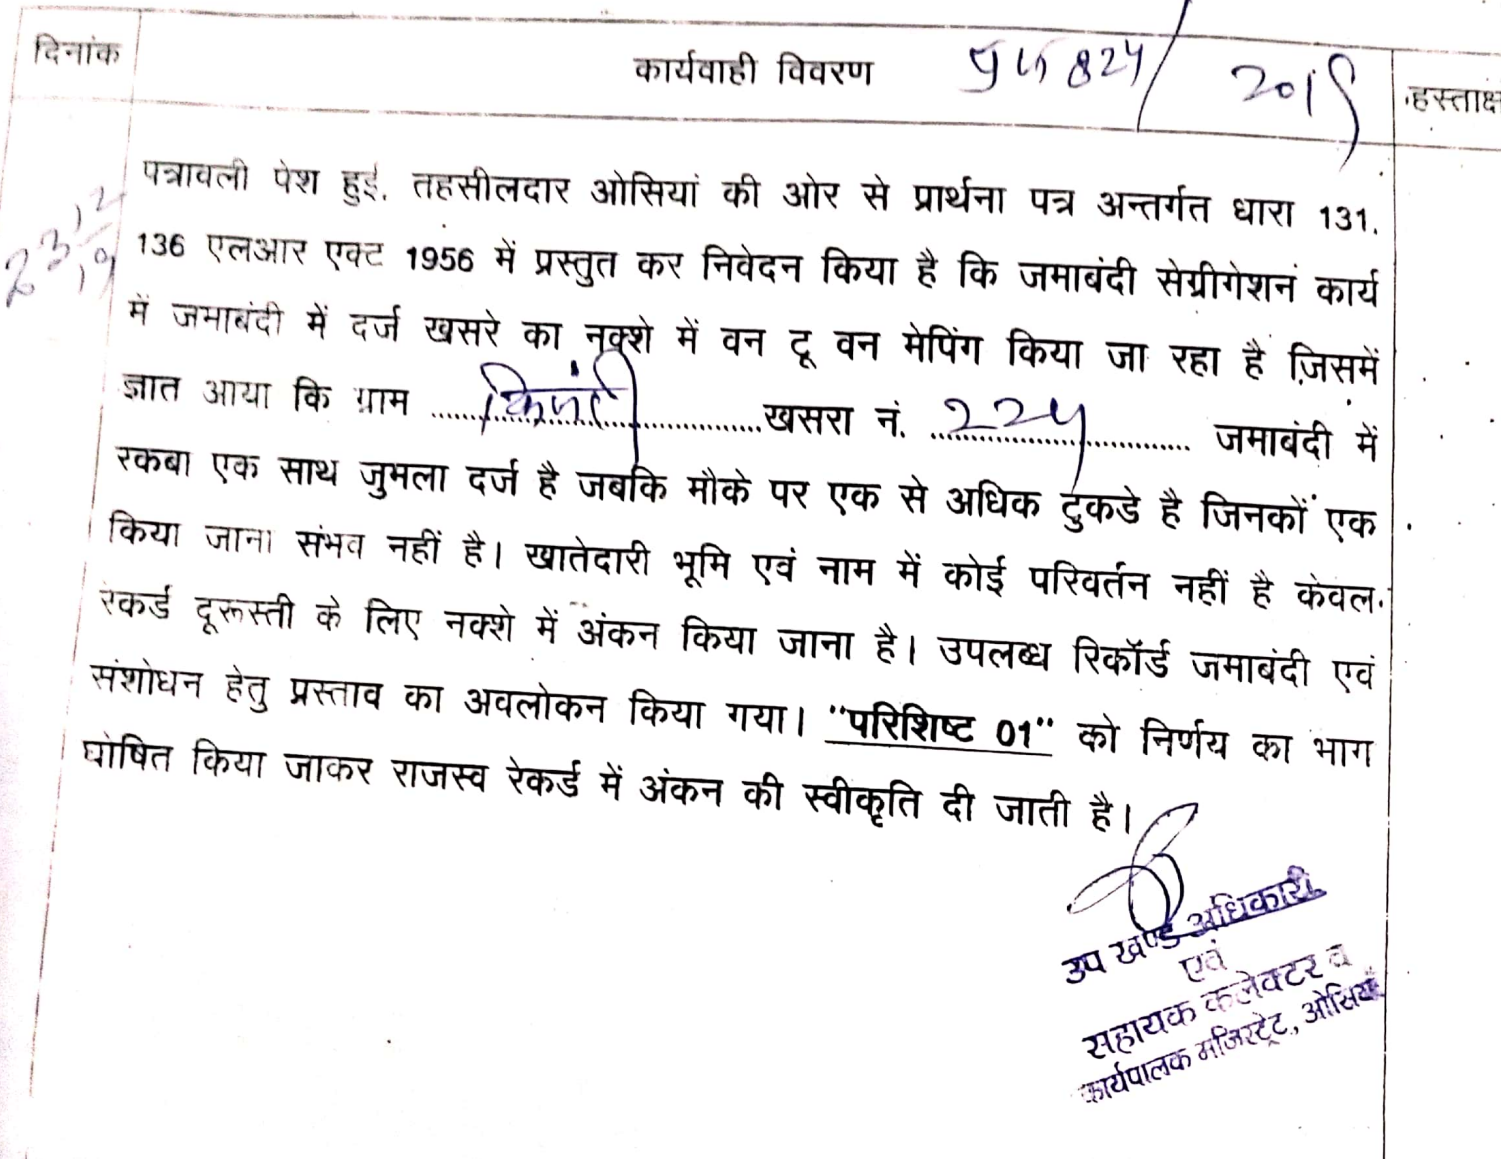 दिनांक
कार्यवाही विवरण 824/
हस्ताक्ष
पत्रावली पेश हुई. तहसीलदार ओसियां की ओर से प्रार्थना पत्र अन्तर्गत धारा 131.
136 एलआर एक्ट 1956 में प्रस्तुत कर निवेदन किया है कि जमाबंदी सेग्रीगेशनं कार्य
में जमाबंदी में दर्ज खसरे का नक्शे में वन टू वन मेपिंग किया जा रहा है जिसमें
ज्ञात आया कि ग्राम ............ खसरा नं. ............ जमाबंदी में
रकबा एक साथ जुमला दर्ज है जबकि मौके पर एक से अधिक टुकडे है जिनकों एक
किया जाना संभव नहीं है। खातेदारी भूमि एवं नाम में कोई परिवर्तन नहीं है केवल
रेकर्ड दूरूस्ती के लिए नक्शे में अंकन किया जाना है। उपलब्ध रिकॉर्ड जमाबंदी एवं
संशोधन हेतु प्रस्ताव का अवलोकन किया गया। "परिशिष्ट 01" को निर्णय का भाग
घोषित किया जाकर राजस्व रेकर्ड में अंकन की स्वीकृति दी जाती है।
उप खण्ड अधिकारी
एवं
सहायक कलेक्टर व
कार्यपालक मजिस्ट्रेट, ओसियाँ